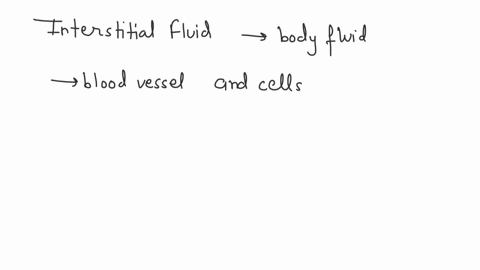 Interstitial fluid → body fluid
→ blood vessel and cells